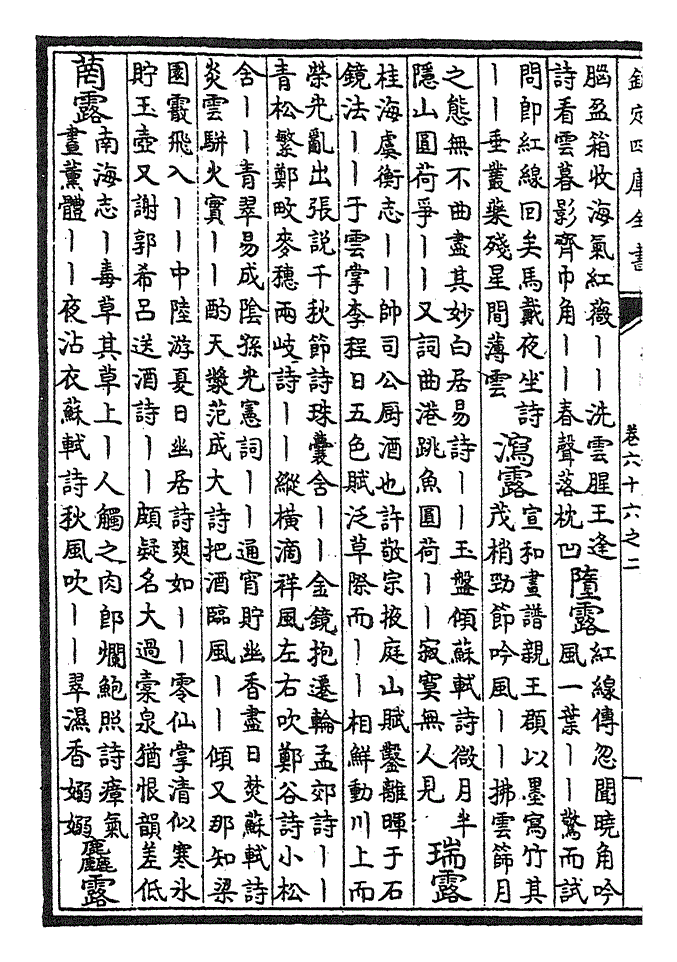 欽定四庫全書
卷六十六之二
腦盈箱收海氣紅薇丨丨洗雲腥王逢
詩看雲暮影齊巾角丨丨春聲落枕凹
墮露
紅線傳忽聞曉角吟
風一葉丨丨驚而試
問即紅線回矣馬戴夜坐詩
丨丨垂叢藥殘星間薄雲
瀉露
宣和畫譜親王頵以墨寫竹其
茂梢勁節吟風丨丨拂雲篩月
之態無不曲盡其妙白居易詩丨丨玉盤傾蘇軾詩微月半
隱山圓荷爭丨丨又詞曲港跳魚圓荷丨丨寂寞無人見
瑞露
桂海虞衡志丨丨帥司公厨酒也許敬宗掖庭山賦鑿離暉于石
鏡法丨丨于雲掌李程日五色賦泛草際而丨丨相鮮動川上而
榮光亂出張説千秋節詩珠囊含丨丨金鏡抱遷輪孟郊詩丨丨
青松繁鄭畋麥穗兩岐詩丨丨縱橫滴祥風左右吹鄭谷詩小松
含丨丨青翠易成陰孫光憲詞丨丨通宵貯幽香盡日焚蘇軾詩
炎雲駢火實丨丨酌天漿范成大詩把酒臨風丨丨傾又那知梁
園霰飛入丨丨中陸游夏日幽居詩爽如丨丨零仙掌清似寒冰
貯玉壺又謝郭希呂送酒詩丨丨頗疑名大過橐泉猶恨韻差低
菵露
南海志丨毒草其草上丨人觸之肉郎爛鮑照詩瘴氣
晝薰體丨丨夜沾衣蘇軾詩秋風吹丨丨翠濕香嫋嫋
麤露